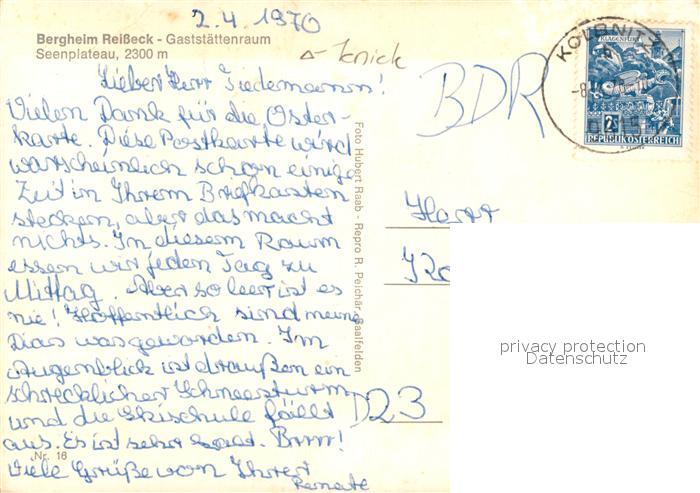 2.4.1970
Bergheim Reißeck - Gaststättenraum
Seenplateau, 2300 m
Knick
Lieber Herr Tiedemann!
Vielen Dank für die Oster-
karte. Diese Postkarte wird
warscheinlich schon einige
Zeit in Ihrem Briefkasten
stecken, aber das macht
nichts. In diesem Raum
essen wir jeden Tag zu
Mittag. Aber so leer ist es
nie! Hoffentlich sind meine
Dias was geworden. Im
Augenblick ist draußen ein
schrecklicher Schneesturm
und die Skischule fällt
aus. Es ist sehr kalt. Brrr!
Nr. 16
Viele Grüße von Ihrer
Renate
Foto Hubert Raab - Repro R. Peichär, Saalfelden
BDR
KLAGENFURT
2S
REPUBLIK ÖSTERREICH
Herrn
D23
privacy protection
Datenschutz